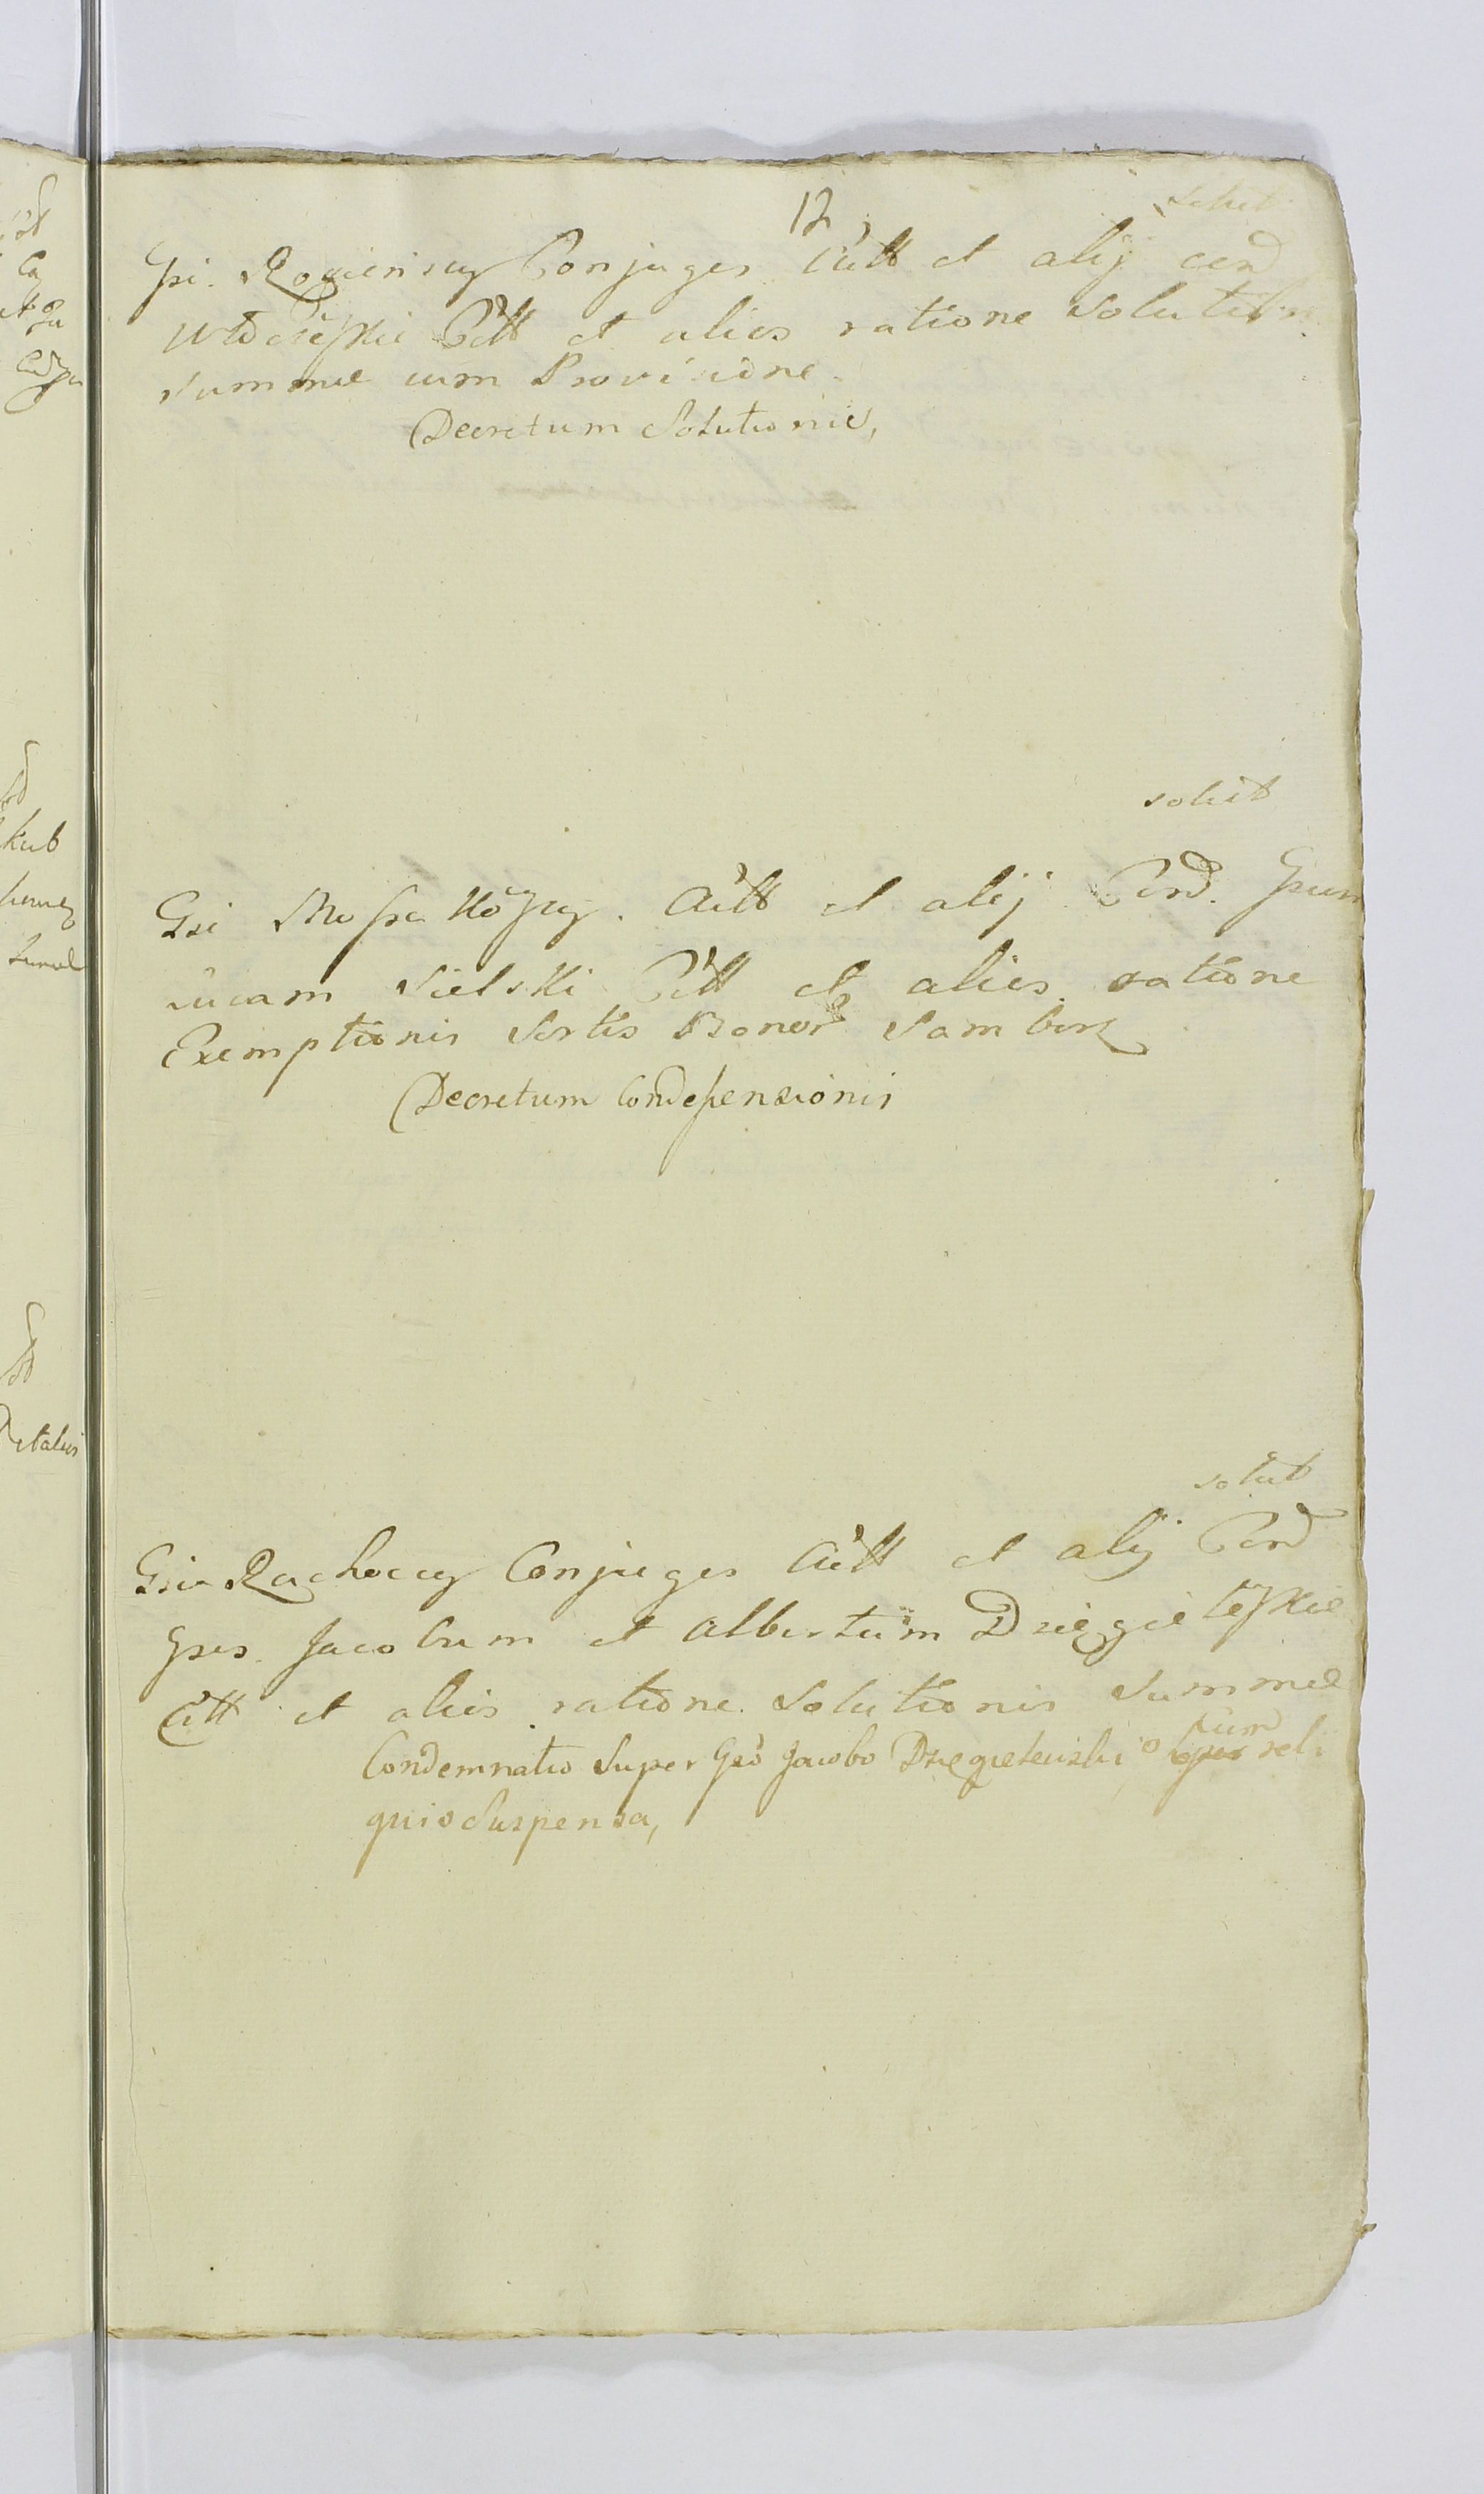 12
solut
Gsi. Rogiensey Conjuges Actt et alij cend
Włocieskie Citt et alios ratione Solution
summae cum Provisione.
Decretum Solutionis,
solut
Gsi Mossa Kosscy. Actt et alij Cend. Gsum
Sielski Citt et alios ratione
Exemptionis Sortis Bonor Sambor
Decretum Condescensionis
solut
Gsi Rachoccy Conjuges Actt et alij Cend
Gsos. Jacobum et Albertum Dzięgieleskie
Citt et alios ratione Solutionis Summae
Condemnatio Super Gso Jacobo Dziegielewski, cum reli
quis Suspensa,